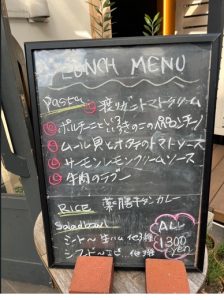 LUNCH MENU
Pasta ㋐ 渡りガニトマトクリーム
ポルチーニといろいろきのこの
ムール貝とホタテのトマトソース
サーモンレモンクリームソース
牛肉のラグー
RICE 薬膳チキンカレー
Salad
ミート〜 生ハム 他3種
シーフード〜 エビ 他3種
ALL
1300
yen